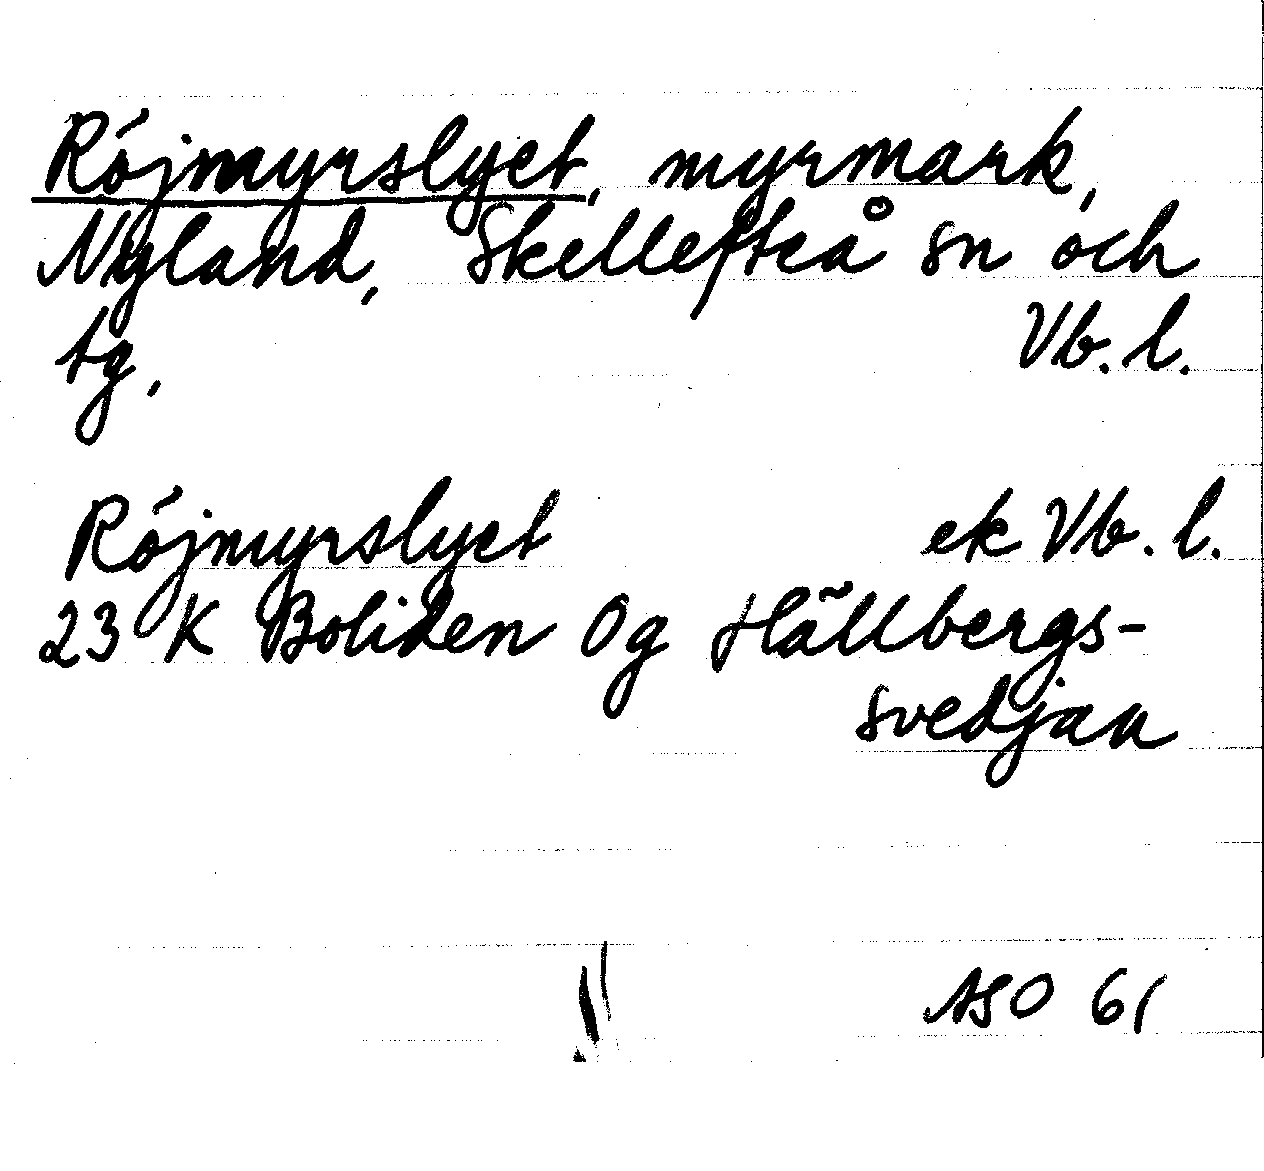 Röjmyrslyet, myrmark,
Nyland, Skellefteå sn och
tg, Vb. l.
Röjmyrslyet ek Vb. l.
23 K Boliden 0g Hällbergs-
svedjan
ASO 61